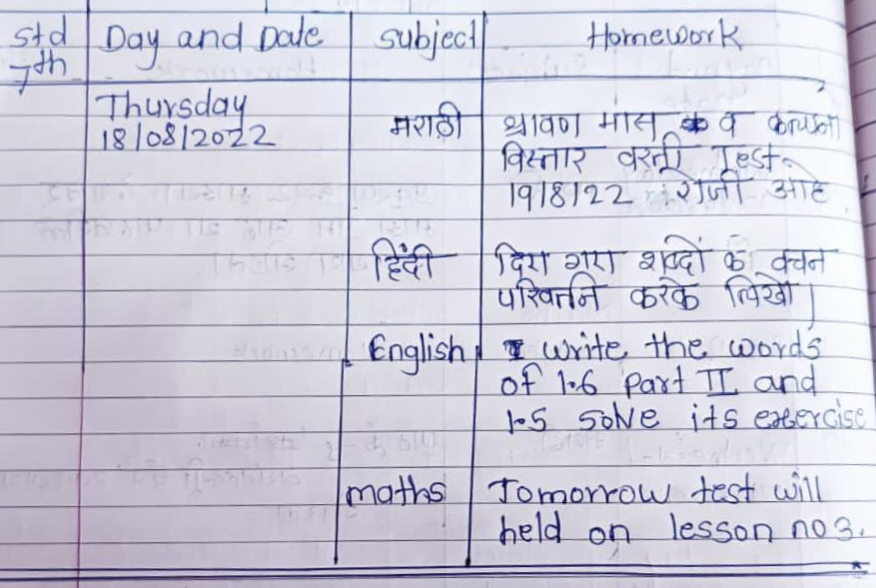 std Day and Date subject Homework
7th
Thursday
18/08/2022 मराठी श्रावण मास व कल्पना
विस्तार वरती Test.
19/8/22 रोजी आहे
हिंदी दिए गए शब्दों के वचन
परिवर्तन करके लिखो।
English write the words
of 1.6 Part II and
1.5 solve its exercise
maths Tomorrow test will
held on lesson no 3.